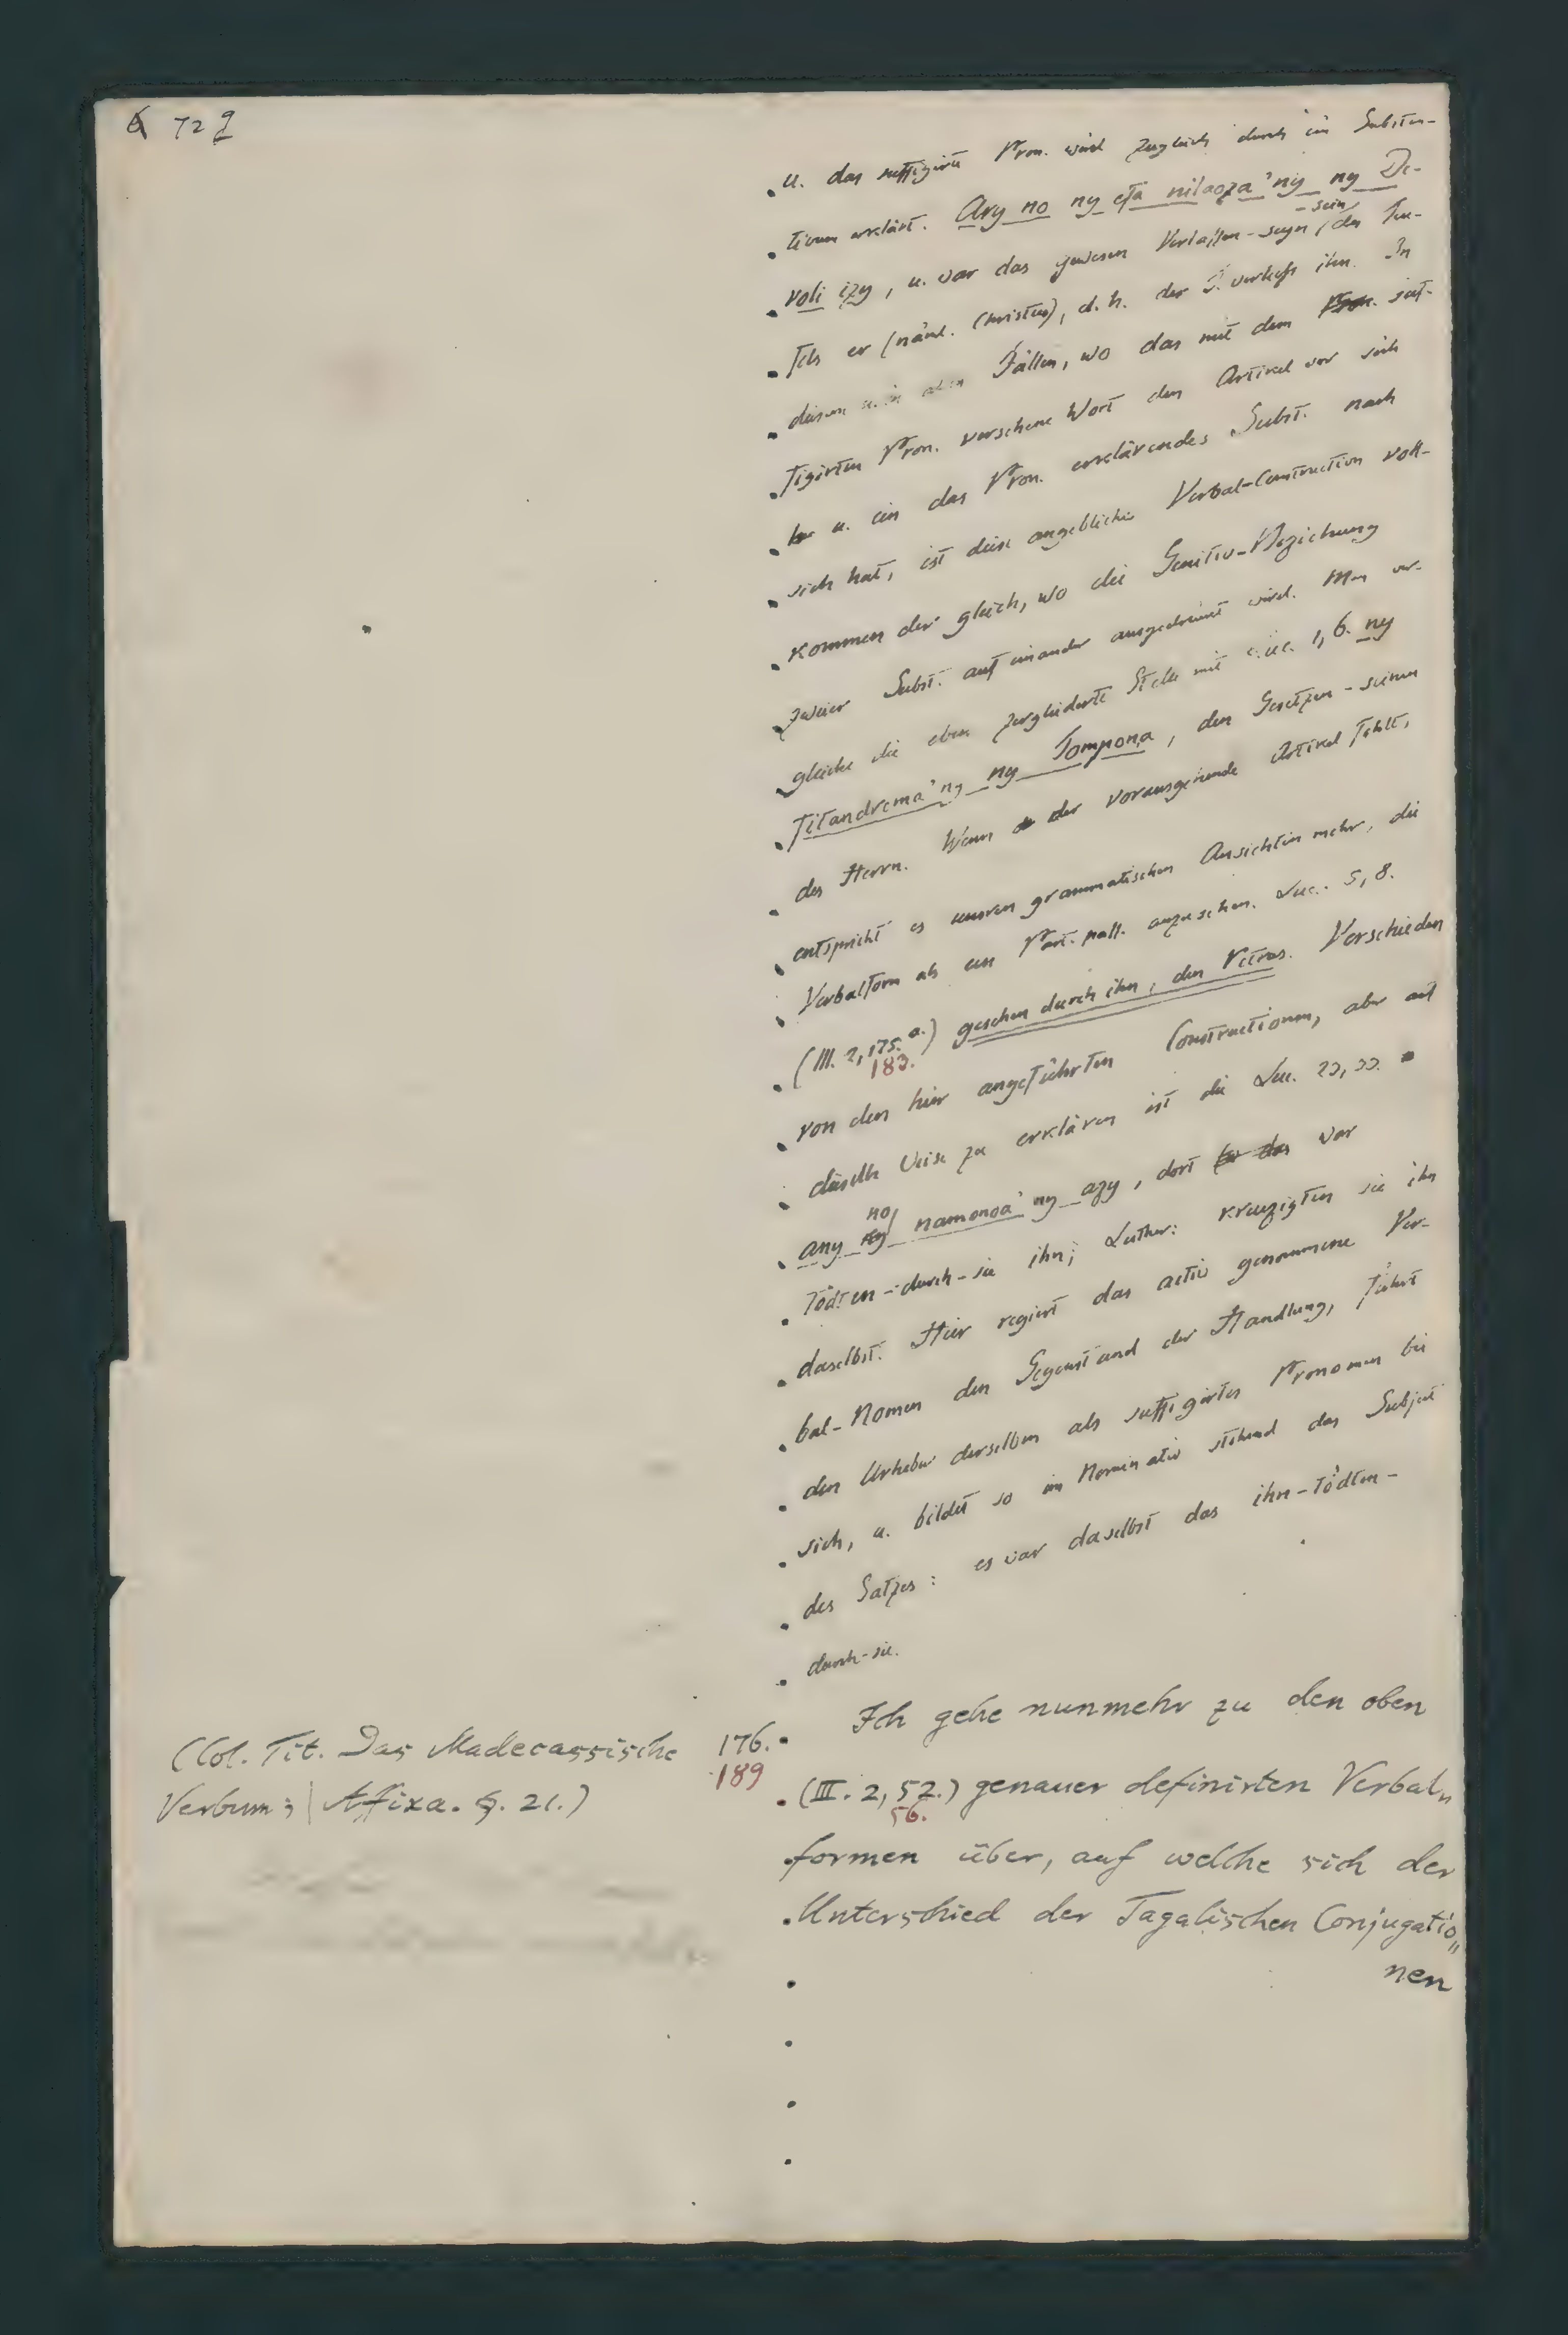 72 g
u. das suffigirte Pron. wird zugleich durch ein Substan-
tivum erklärt. Ary no ny efa nilaoza'ny ny De-
voli izy, u. war das gewesen Verlassen-seyn -sein des Teu-
fels er (näml. Christus), d. h. der T. verliess ihn. In
diesen u. in allen Fällen, wo das mit dem Pron. suf-
figirten Pron. versehene Wort den Artikel vor sich
u. ein das Pron. erklärendes Subst. nach
sich hat, ist diese angebliche Verbal-Construction voll-
kommen der gleich, wo die Genitiv-Beziehung
zweier Subst. auf einander ausgedrückt wird. Man ver-
gleiche die eben zergliederte Stelle mit Luc. 1, 6. ny
fitandrema'ny ny Tompona, den Gesetzen-seinen
des Herrn. Wenn der vorausgehende Artikel fehlt,
entspricht es unsren grammatischen Ansichten mehr, die
Verbalform als ein Part. pass. anzusehen. Luc. 5, 8.
(III. 2, 175. a.) gesehen durch ihn, den Petrus. Verschieden
183.
von den hier angeführten Constructionen, aber auf
dieselbe Weise zu erklären ist die Luc. 23, 33.
any ny no namonoa'ny azy, dort war
Tödten-durch-sie ihn; Luther: kreuzigten sie ihn
daselbst. Hier regiert das activ genommene Ver-
bal-Nomen den Gegenstand der Handlung, führt
den Urheber derselben als suffigirtes Pronomen bei
sich, u. bildet so im Nominativ stehend das Subject
des Satzes: es war daselbst das ihn-Tödten-
durch-sie.
(Col. Tit. Das Madecassische
Verbum; Affixa. §. 21.)
176.
189
Ich gehe nunmehr zu den oben
(III. 2, 52.) genauer definirten Verbal„
56.
formen über, auf welche sich der
Unterschied der Tagalischen Conjugatio„
nen